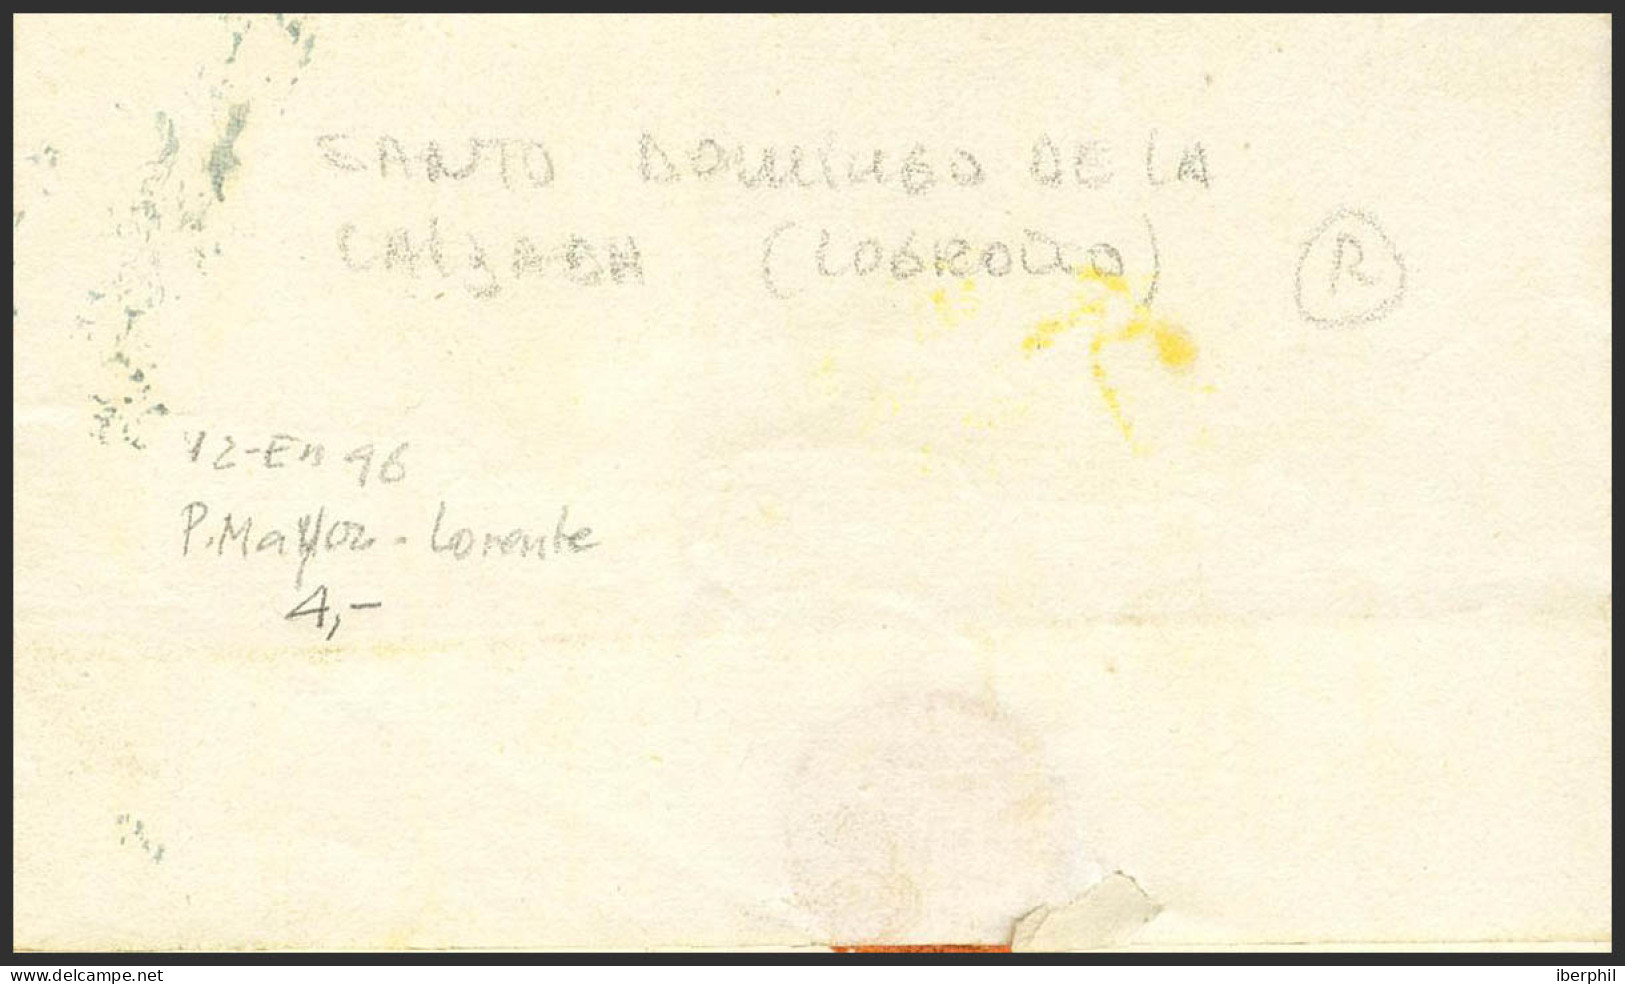 SANTO DOMINGO DE LA
CALZADA (LOGROÑO) R
12-En 96
P. Mayor - Lorente
4,-
www.delcampe.net iberphil